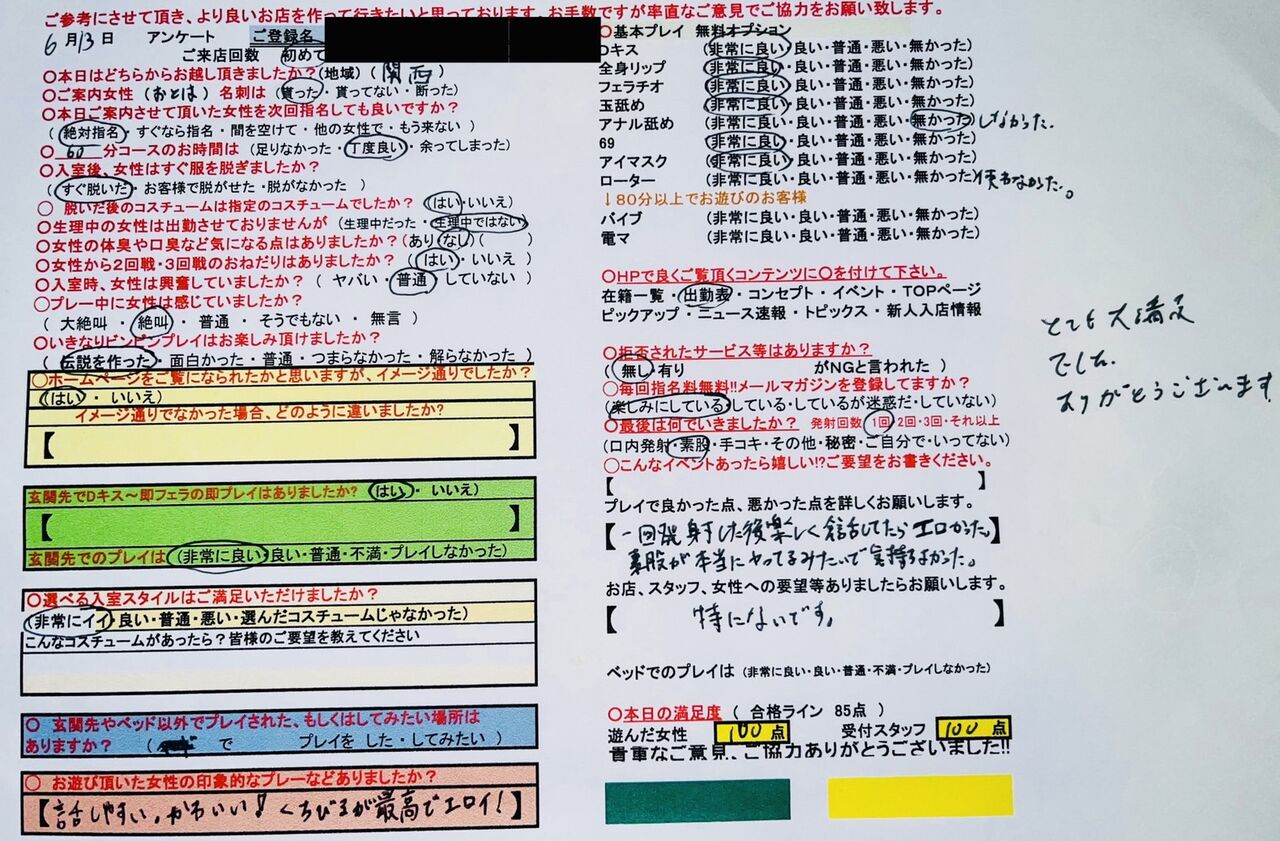 ご参考にさせて頂き、より良いお店を作って行きたいと思っております。お手数ですが率直なご意見でご協力をお願い致します。
6月13日 アンケート ご登録名
ご来店回数 初めて
〇本日はどちらからお越し頂きましたか?(地域) ( 関西 )
〇ご案内女性 (おとは) 名刺は (貰った・貰ってない・断った)
〇本日ご案内させて頂いた女性を次回指名しても良いですか?
( 絶対指名・すぐなら指名・間を空けて・他の女性で・もう来ない )
〇 60 分コースのお時間は (足りなかった・丁度良い・余ってしまった)
〇入室後、女性はすぐ服を脱ぎましたか?
( すぐ脱いだ・お客様で脱がせた・脱がなかった )
〇 脱いだ後のコスチュームは指定のコスチュームでしたか? (はい・いいえ)
〇生理中の女性は出勤させておりませんが (生理中だった・生理中ではない)
〇女性の体臭や口臭など気になる点はありましたか?(あり・なし)( )
〇女性から2回戦・3回戦のおねだりはありましたか? ( はい・いいえ )
〇入室時、女性は興奮していましたか? ( ヤバい・普通・していない )
〇プレー中に女性は感じていましたか?
( 大絶叫 ・ 絶叫 ・ 普通 ・ そうでもない ・ 無言 )
〇いきなりビンビンプレイはお楽しみ頂けましたか?
( 伝説を作った・面白かった・普通・つまらなかった・解らなかった )
〇ホームページをご覧になられたかと思いますが、イメージ通りでしたか?
(はい ・ いいえ)
イメージ通りでなかった場合、どのように違いましたか?
【 】
玄関先でDキス～即フェラの即プレイはありましたか? (はい ・ いいえ)
【 】
玄関先でのプレイは (非常に良い・良い・普通・不満・プレイしなかった)
〇選べる入室スタイルはご満足いただけましたか?
(非常にイイ・良い・普通・悪い・選んだコスチュームじゃなかった)
こんなコスチュームがあったら?皆様のご要望を教えてください
〇 玄関先やベッド以外でプレイされた、もしくはしてみたい場所は
ありますか? ( で プレイを した・してみたい )
〇 お遊び頂いた女性の印象的なプレーなどありましたか?
【話しやすい。かわいい!くちびるが最高でエロイ!】
〇基本プレイ 無料オプション
Dキス (非常に良い・良い・普通・悪い・無かった)
全身リップ (非常に良い・良い・普通・悪い・無かった)
フェラチオ (非常に良い・良い・普通・悪い・無かった)
玉舐め (非常に良い・良い・普通・悪い・無かった)
アナル舐め (非常に良い・良い・普通・悪い・無かった)しなかった。
69 (非常に良い・良い・普通・悪い・無かった)
アイマスク (非常に良い・良い・普通・悪い・無かった)
ローター (非常に良い・良い・普通・悪い・無かった)使わなかった。
↓80分以上でお遊びのお客様
バイブ (非常に良い・良い・普通・悪い・無かった)
電マ (非常に良い・良い・普通・悪い・無かった)
〇HPで良くご覧頂くコンテンツに〇を付けて下さい。
在籍一覧・出勤表・コンセプト・イベント・TOPページ
ピックアップ・ニュース速報・トピックス・新人入店情報
〇拒否されたサービス等はありますか?
( 無し・有り がNGと言われた )
〇毎回指名料無料!!メールマガジンを登録してますか?
(楽しみにしている・している・しているが迷惑だ・していない)
〇最後は何でいきましたか? 発射回数 1回・2回・3回・それ以上
(口内発射・素股・手コキ・その他・秘密・ご自分で・いってない)
〇こんなイベントあったら嬉しい!?ご要望をお書きください。
【 】
プレイで良かった点、悪かった点を詳しくお願いします。
【一回発射した後楽しく会話してたらエロかった。】
素股が本当にヤってるみたいで気持ちよかった。
お店、スタッフ、女性への要望等ありましたらお願いします。
【 特にないです。 】
ベッドでのプレイは (非常に良い・良い・普通・不満・プレイしなかった)
〇本日の満足度 ( 合格ライン 85点 )
遊んだ女性 100 点 受付スタッフ 100 点
貴重なご意見、ご協力ありがとうございました!!
とても大満足
でした。
ありがとうございます